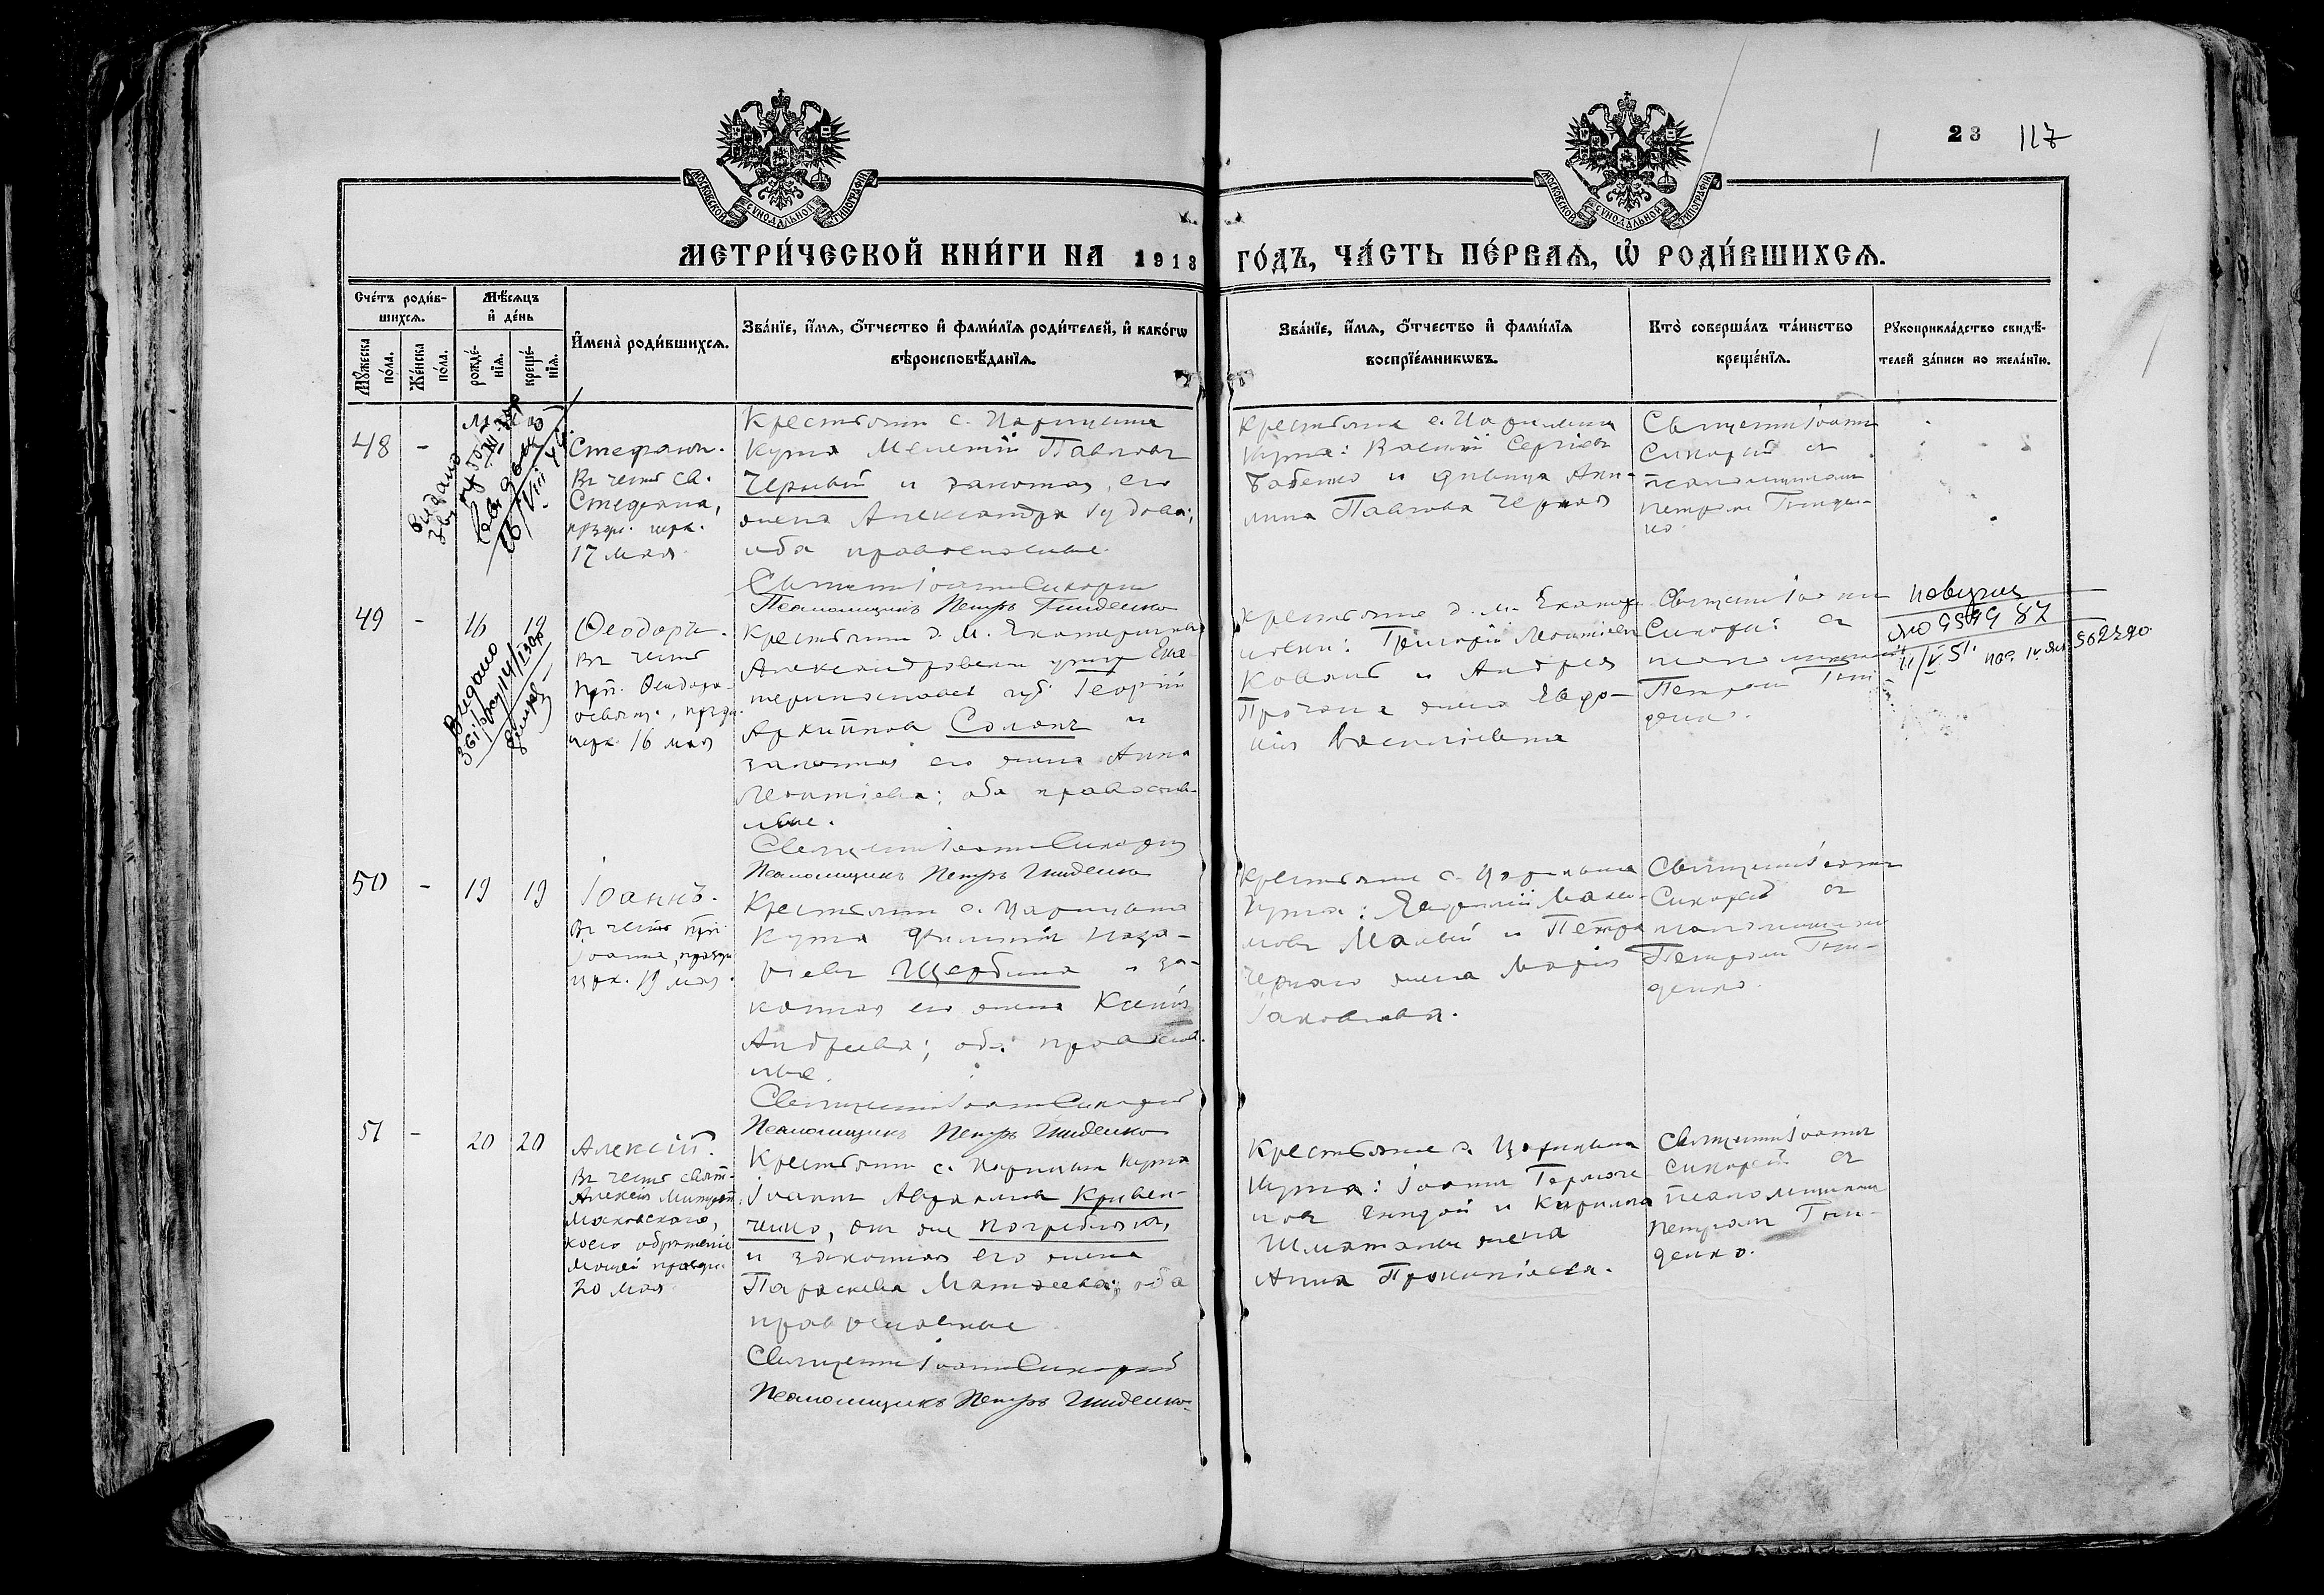 МОСКОВСКОЙ СѴНОДАЛЬНОЙ ТИПОГРАФІИ
МОСКОВСКОЙ СѴНОДАЛЬНОЙ ТИПОГРАФІИ
23 117
МЕТРИ́ЧЕСКОЙ КНИ́ГИ НА 1913 ГО́ДЪ, ЧА́СТЬ ПЕ́РВАЯ, Ѡ҆ РОДИ́ВШИХСѦ.
Сче́тъ роди́в-
шихсѧ.
Мѣ́сѧцъ
и҆ де́нь
Мꙋ́жеска
по́ла.
Же́нска
по́ла.
рожде́-
нїѧ.
креще́-
нїѧ.
И҆мена̀ роди́вшихсѧ.
Зва́нїе, и҆́мѧ, ѻ҆́тчество и҆ фами́лїѧ роди́телей, и҆ како́гѡ
вѣроисповѣ́данїѧ.
Зва́нїе, и҆́мѧ, ѻ҆́тчество и҆ фами́лїѧ
воспрїе́мникѡвъ.
Кто̀ соверша́лъ та́инство
креще́нїѧ.
Рꙋкоприкла́дство свидѣ́-
телей за́писи по жела́нїю.
48 -
Стефанъ.
Въ честь св.
Стефана,
17 мая
Крестьянин с. Царицына
Кута Мелетій Павловъ
Черный и законная его
жена Александра
оба православные.
Священникъ Іоаннъ Сикорский
Псаломщикъ Петръ Гниденко
Крестьяне с. Царицына
Кута: Василій Сергіевъ
Бабенко и девица Аки-
лина Павлова Черная
Священникъ Іоаннъ
Сикорский съ
псаломщикомъ
Петромъ Гниден-
ко.
49 - 16 19
Ѳеодоръ.
Въ честь
прп. Ѳеодора
освящ., празд.
церк. 16 мая
Выдано
Крестьянин д. М. Екатериновки
Александровскаго уезда Ека-
теринославск. губ. Георгій
Архиповъ Солянъ и
законная его жена Анна
Леонтіева; оба православ-
ные.
Священникъ Іоаннъ Сикорский
Псаломщикъ Петръ Гниденко
Крестьяне д. М. Екатери-
новки: Григорій Леонтіевъ
Ковань и Андрея
жена Евдо-
кія Васильевна
Священникъ Іоаннъ
Сикорский съ
псаломщикомъ
Петромъ Гни-
денко.
50 - 19 19
Іоаннъ.
Въ честь прп.
Іоанна, праздн.
церк. 19 мая.
Крестьянин с. Царицына
Кута Филиппъ Наза-
ріевъ Щербина и за-
конная его жена Ксенія
Андреева; оба православ-
ные.
Священникъ Іоаннъ Сикорский
Псаломщикъ Петръ Гниденко
Крестьяне с. Царицына
Кута: Евфимій Макси-
мовъ Малый и Петра
Чернаго жена Марія
Іаковлева.
Священникъ Іоаннъ
Сикорский съ
псаломщикомъ
Петромъ Гни-
денко.
51 - 20 20
Алексій.
Въ честь свят.
Алексія Митроп.
Московскаго,
коего обретеніе
мощей праздн.
20 мая
Крестьянин с. Царицына Кута
Іоаннъ Авраамовъ Кривен-
ченко, онъ же Погребнякъ,
и законная его жена
Параскева Матѳеева; оба
православные
Священникъ Іоаннъ Сикорский
Псаломщикъ Петръ Гниденко
Крестьяне с. Царицына
Кута: Іоаннъ Гермоге-
новъ Гнидой и Кирилла
Шматана жена
Анна Прокопіева.
Священникъ Іоаннъ
Сикорский съ
псаломщикомъ
Петромъ Гни-
денко.